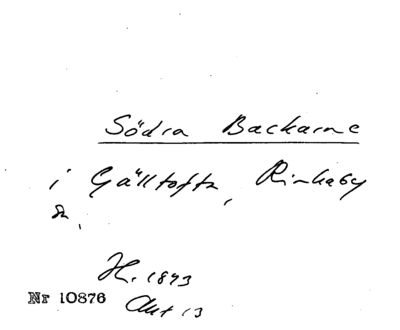 Södra Backarne
i Gälltofta, Rinkaby
sn,
H. 1893
Nr 10876 Akt 13